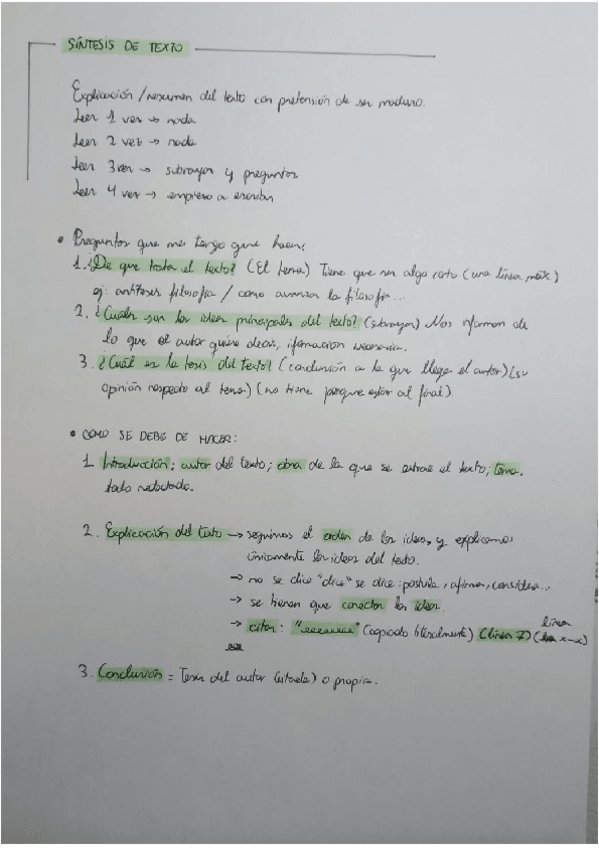 SÍNTESIS DE TEXTO
Explicación/resumen del texto con pretensión de ser maduro.
Leer 1 vez → nada
Leer 2 vez → nada
Leer 3 vez → subrayar y preguntas
Leer 4 vez → empiezo a escribir
• Preguntas que me tengo que hacer:
1. ¿De que trata el texto? (El tema) Tiene que ser algo corto (una línea máx.)
ej: antítesis filosofía / como avanza la filosofía...
2. ¿Cuáles son las ideas principales del texto? (subrayar) Nos informan de
lo que el autor quiere decir, información necesaria.
3. ¿Cuál es la tesis del texto? (conclusión a la que llega el autor) (su
opinión respecto al tema) (no tiene porque estar al final)
• COMO SE DEBE DE HACER:
1. Introducción; autor del texto; obra de la que se extrae el texto; tema.
todo redactado.
2. Explicación del texto → seguimos el orden de las ideas, y explicamos
únicamente las ideas del texto.
→ no se dice "dice" se dice: postula, afirma, considera...
→ se tienen que conectar las ideas.
→ citar: "eeeeeeee" (copiado literalmente) (línea 7) (línea x-x)
3. Conclusión = Tesis del autor o propia.